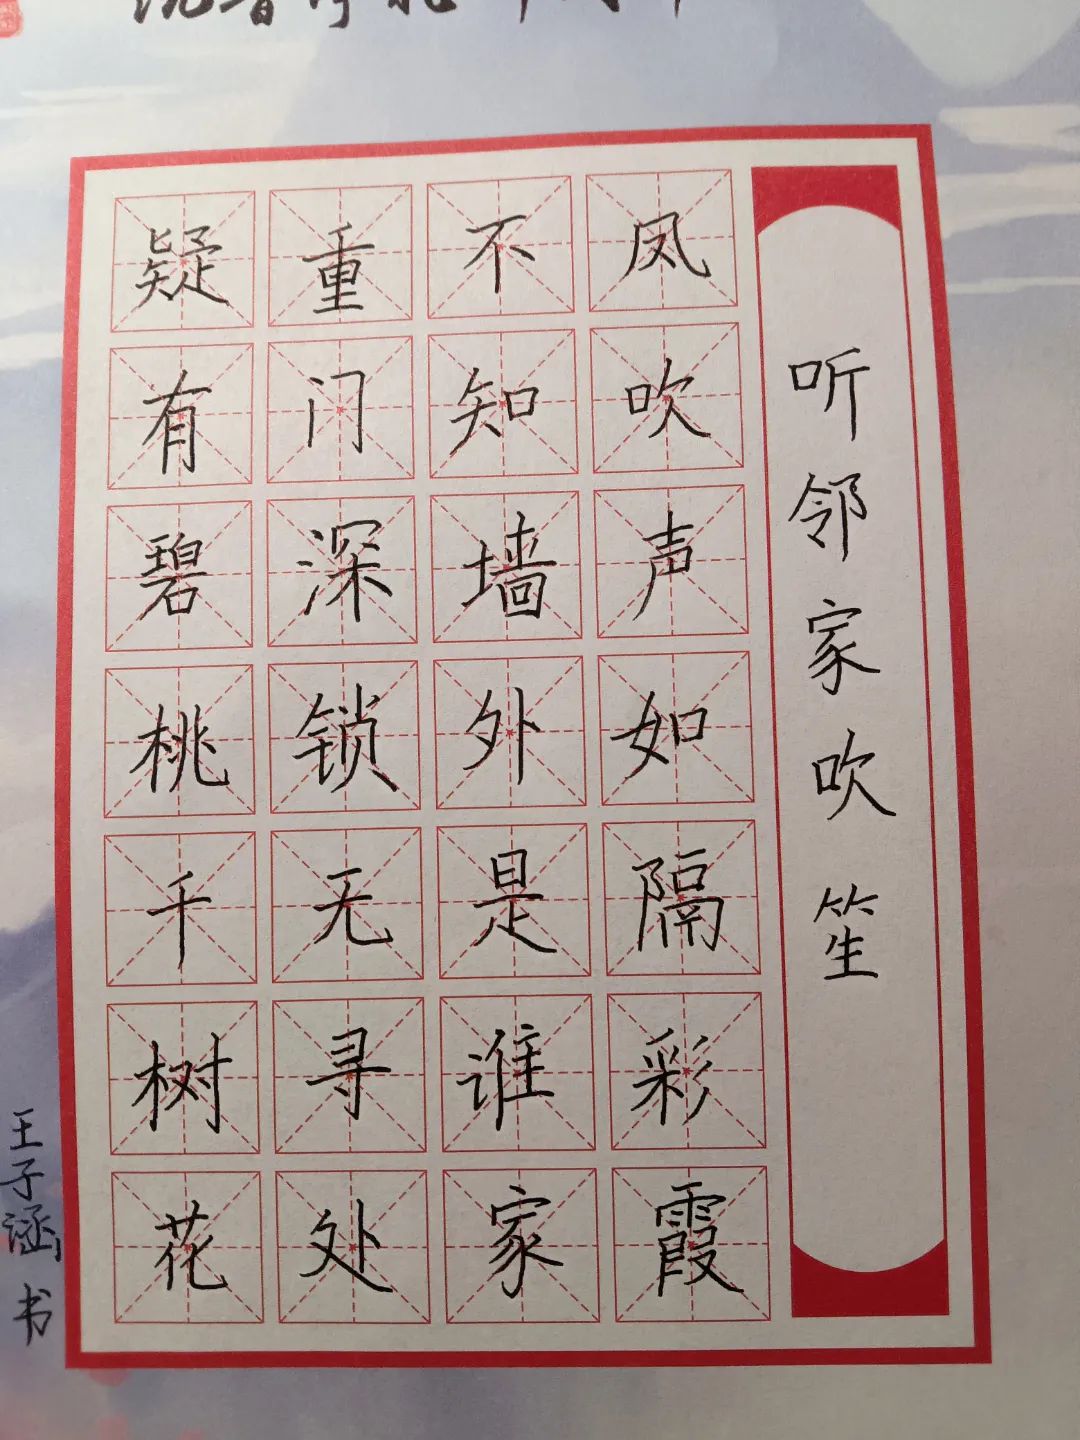 听邻家吹笙
凤吹声如隔彩霞
不知墙外是谁家
重门深锁无寻处
疑有碧桃千树花
王子涵书